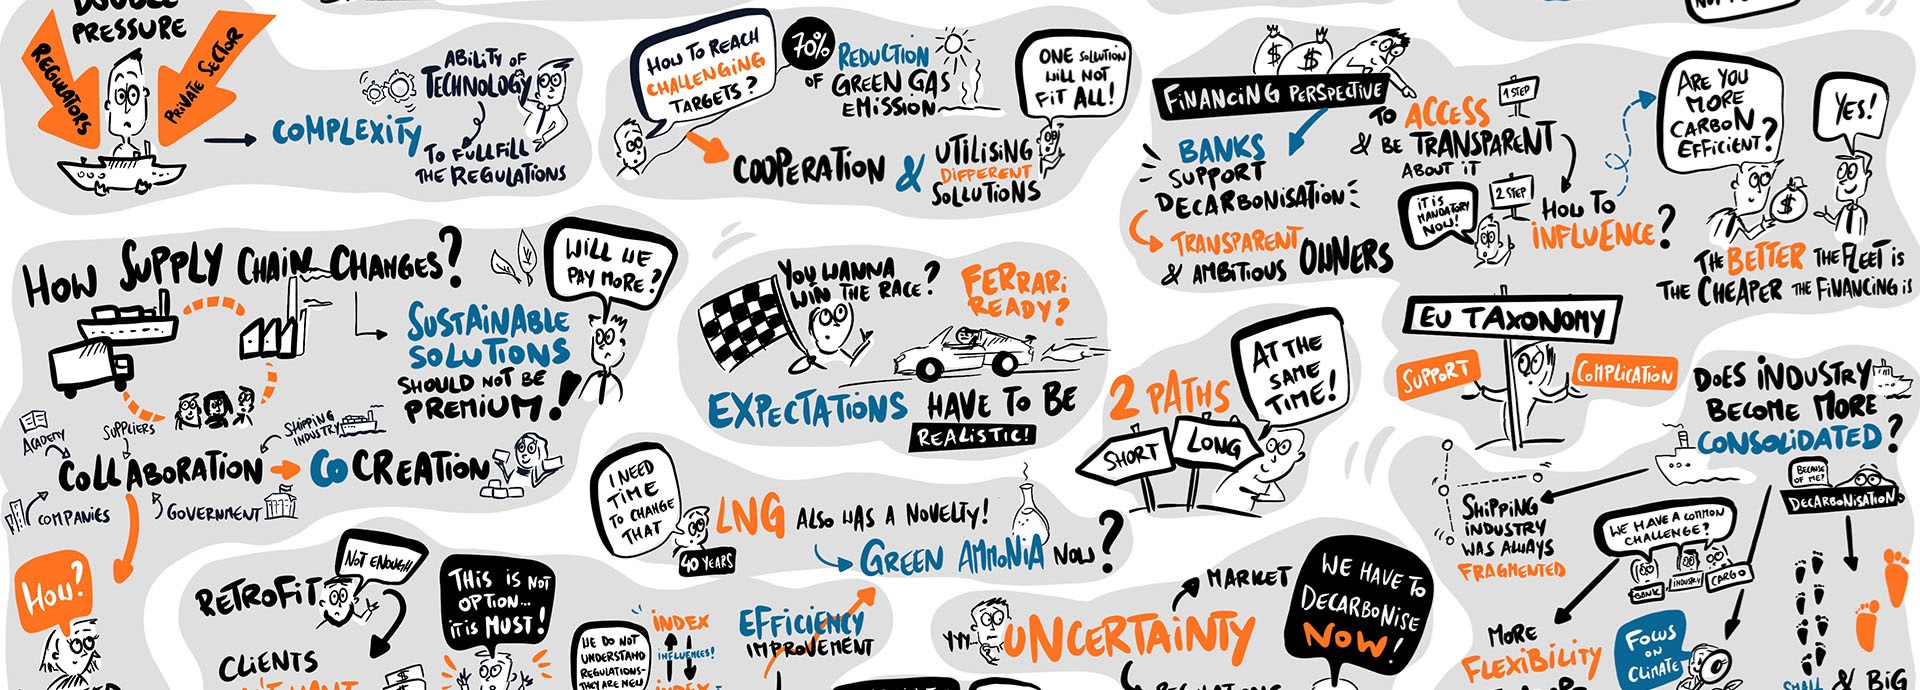 DOUBLE
PRESSURE
REGULATORS
PRIVATE SECTOR
COMPLEXITY
ABILITY OF
TECHNOLOGY
TO FULLFILL
THE REGULATIONS
HOW TO REACH
CHALLENGING
TARGETS?
70%
REDUCTION
OF GREEN GAS
EMISSION
ONE SOLUTION
WILL NOT
FIT ALL!
COOPERATION &
UTILISING
DIFFERENT
SOLLUTIONS
$ $
FINANCING PERSPECTIVE
BANKS
SUPPORT
DECARBONISATION
TRANSPARENT
& AMBITIOUS OWNERS
TO ACCESS
& BE TRANSPARENT
ABOUT IT
1 STEP
2 STEP
IT IS
MANDATORY
NOW!
HOW TO
INFLUENCE?
ARE YOU
MORE
CARBON
EFFICIENT?
YES!
$
THE BETTER THE FLEET IS
THE CHEAPER THE FINANCING IS
HOW SUPPLY CHAIN CHANGES?
WILL WE
PAY MORE?
SUSTAINABLE
SOLUTIONS
SHOULD NOT BE
PREMIUM!
ACADEMY
SUPPLIERS
SHIPPING
INDUSTRY
COLLABORATION
CO CREATION
COMPANIES
GOVERNMENT
HOW?
YOU WANNA
WIN THE RACE?
FERRARI
READY?
EXPECTATIONS HAVE TO BE
REALISTIC!
2 PATHS
SHORT
LONG
AT THE
SAME
TIME!
EU TAXONOMY
SUPPORT
COMPLICATION
DOES INDUSTRY
BECOME MORE
CONSOLIDATED?
BECAUSE
OF ME?
DECARBONISATION
SHIPPING
INDUSTRY
WAS ALWAYS
FRAGMENTED
WE HAVE A COMMON
CHALLENGE?
BANK
INDUSTRY
CARGO
MORE
FLEXIBILITY
FOCUS
ON
CLIMATE
SMALL & BIG
I NEED
TIME
TO CHANGE
THAT
40 YEARS
LNG ALSO WAS A NOVELTY!
GREEN AMMONIA NOW?
RETROFIT
NOT ENOUGH
CLIENTS
THIS IS NOT
OPTION...
IT IS MUST!
WE DO NOT
UNDERSTAND
REGULATIONS-
THEY ARE NEW
INDEX
INFLUENCES!
INDEX
EFFICIENCY
IMPROVEMENT
UNCERTAINTY
MARKET
REGULATIONS
WE HAVE TO
DECARBONISE
NOW!